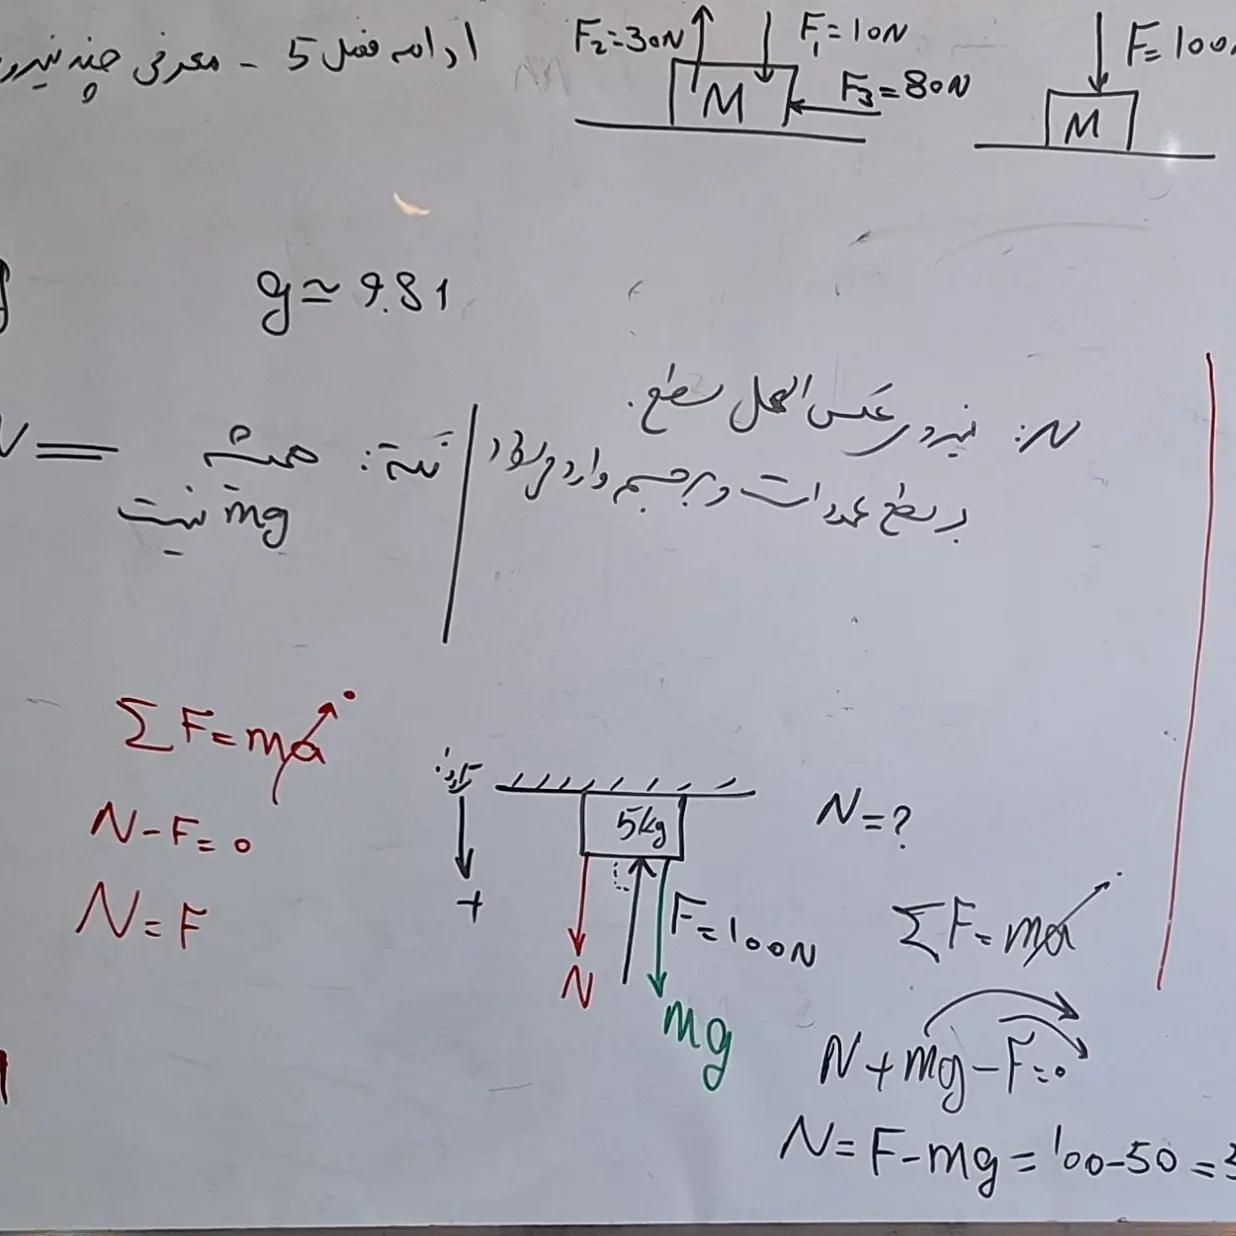 ادامه فصل 5 - معرفی چند نیرو
F₂=30N
F₁=10N
F₃=80N
M
F=100
M
g≃9.81
N: نیروی عکس العمل سطح.
بر سطح عمود است و بر جسم وارد می‌شود
نکته: همیشه
N =
mg نیست
ΣF=ma
N-F=0
N=F
+
5kg
N=?
F=100N
N
mg
ΣF=ma
N+mg-F=0
N=F-mg=100-50=